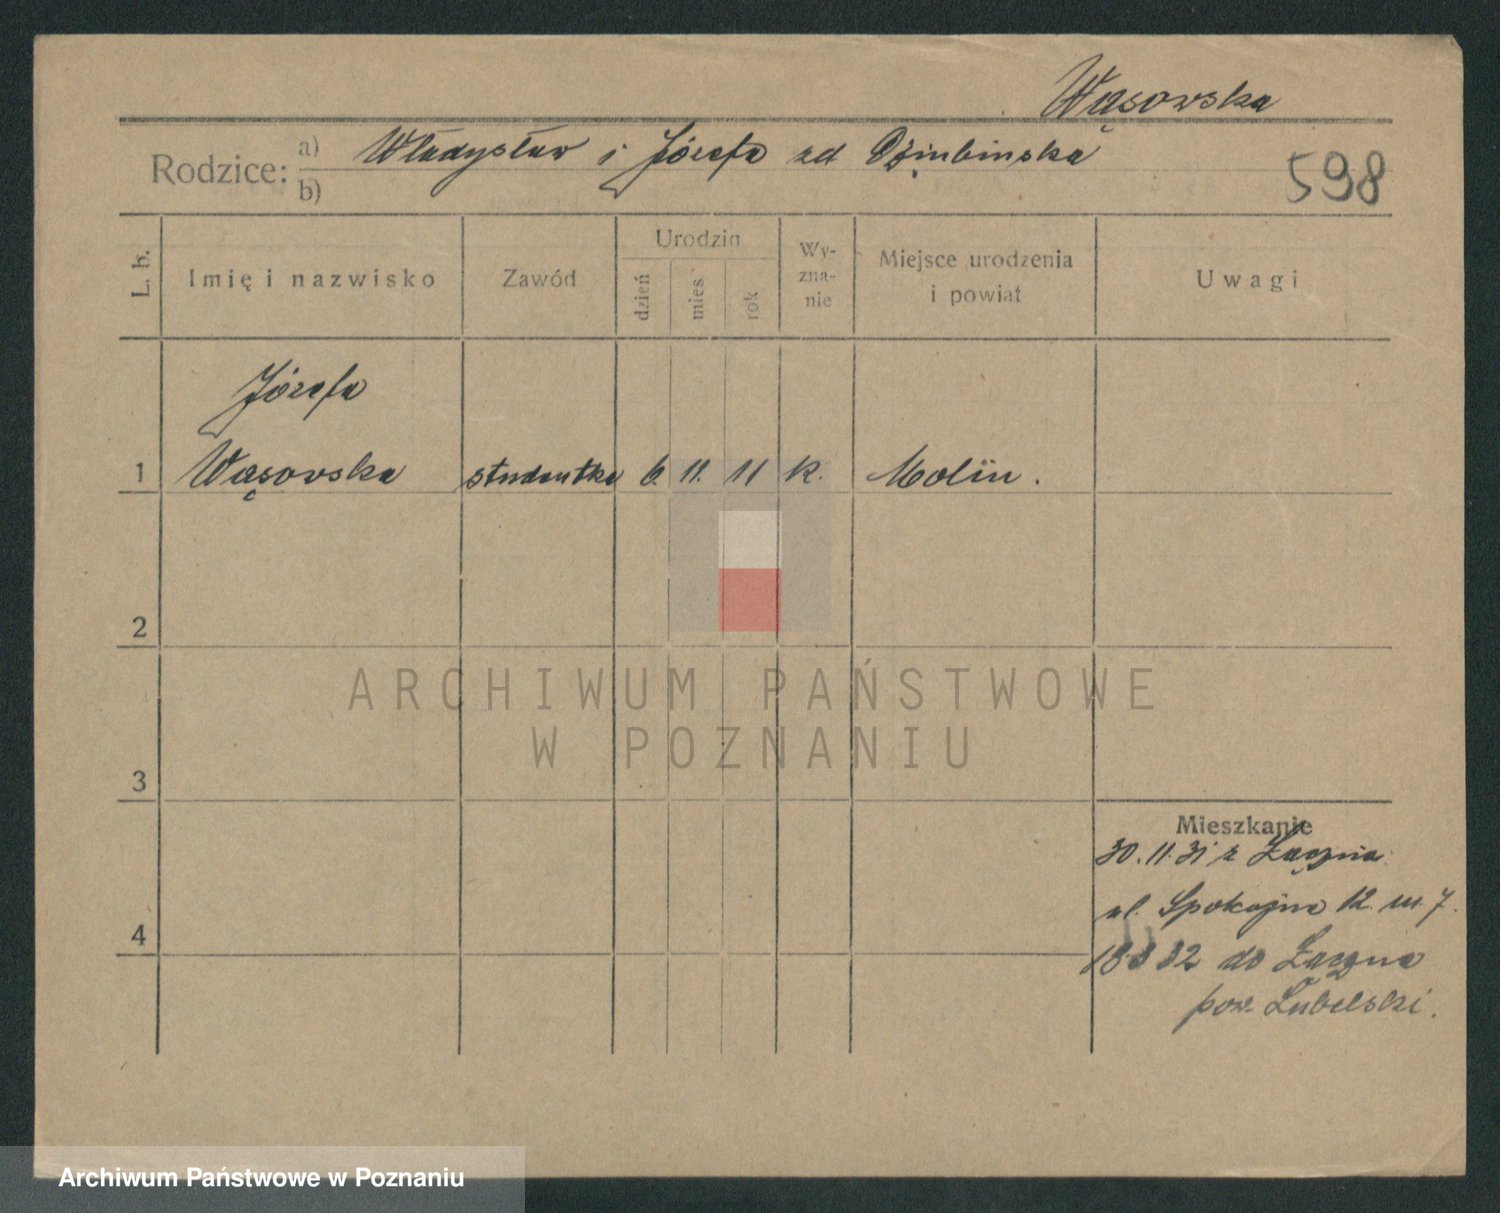 Wąsowska
Rodzice: a) Władysław i Józefa zd
b)
598
L. b.
Imię i nazwisko
Zawód
Urodzin
dzień
mies
rok
Wy-
zna-
nie
Miejsce urodzenia
i powiat
Uwagi
Józefa
1 Wąsowska studentka 6. 11. 11 k. Molin.
2
3
4
ARCHIWUM PAŃSTWOWE
W POZNANIU
Mieszkanie
30.11.31 z
ul. Spokojna 12 m. 7.
32 do
pow. Lubelski.
Archiwum Państwowe w Poznaniu